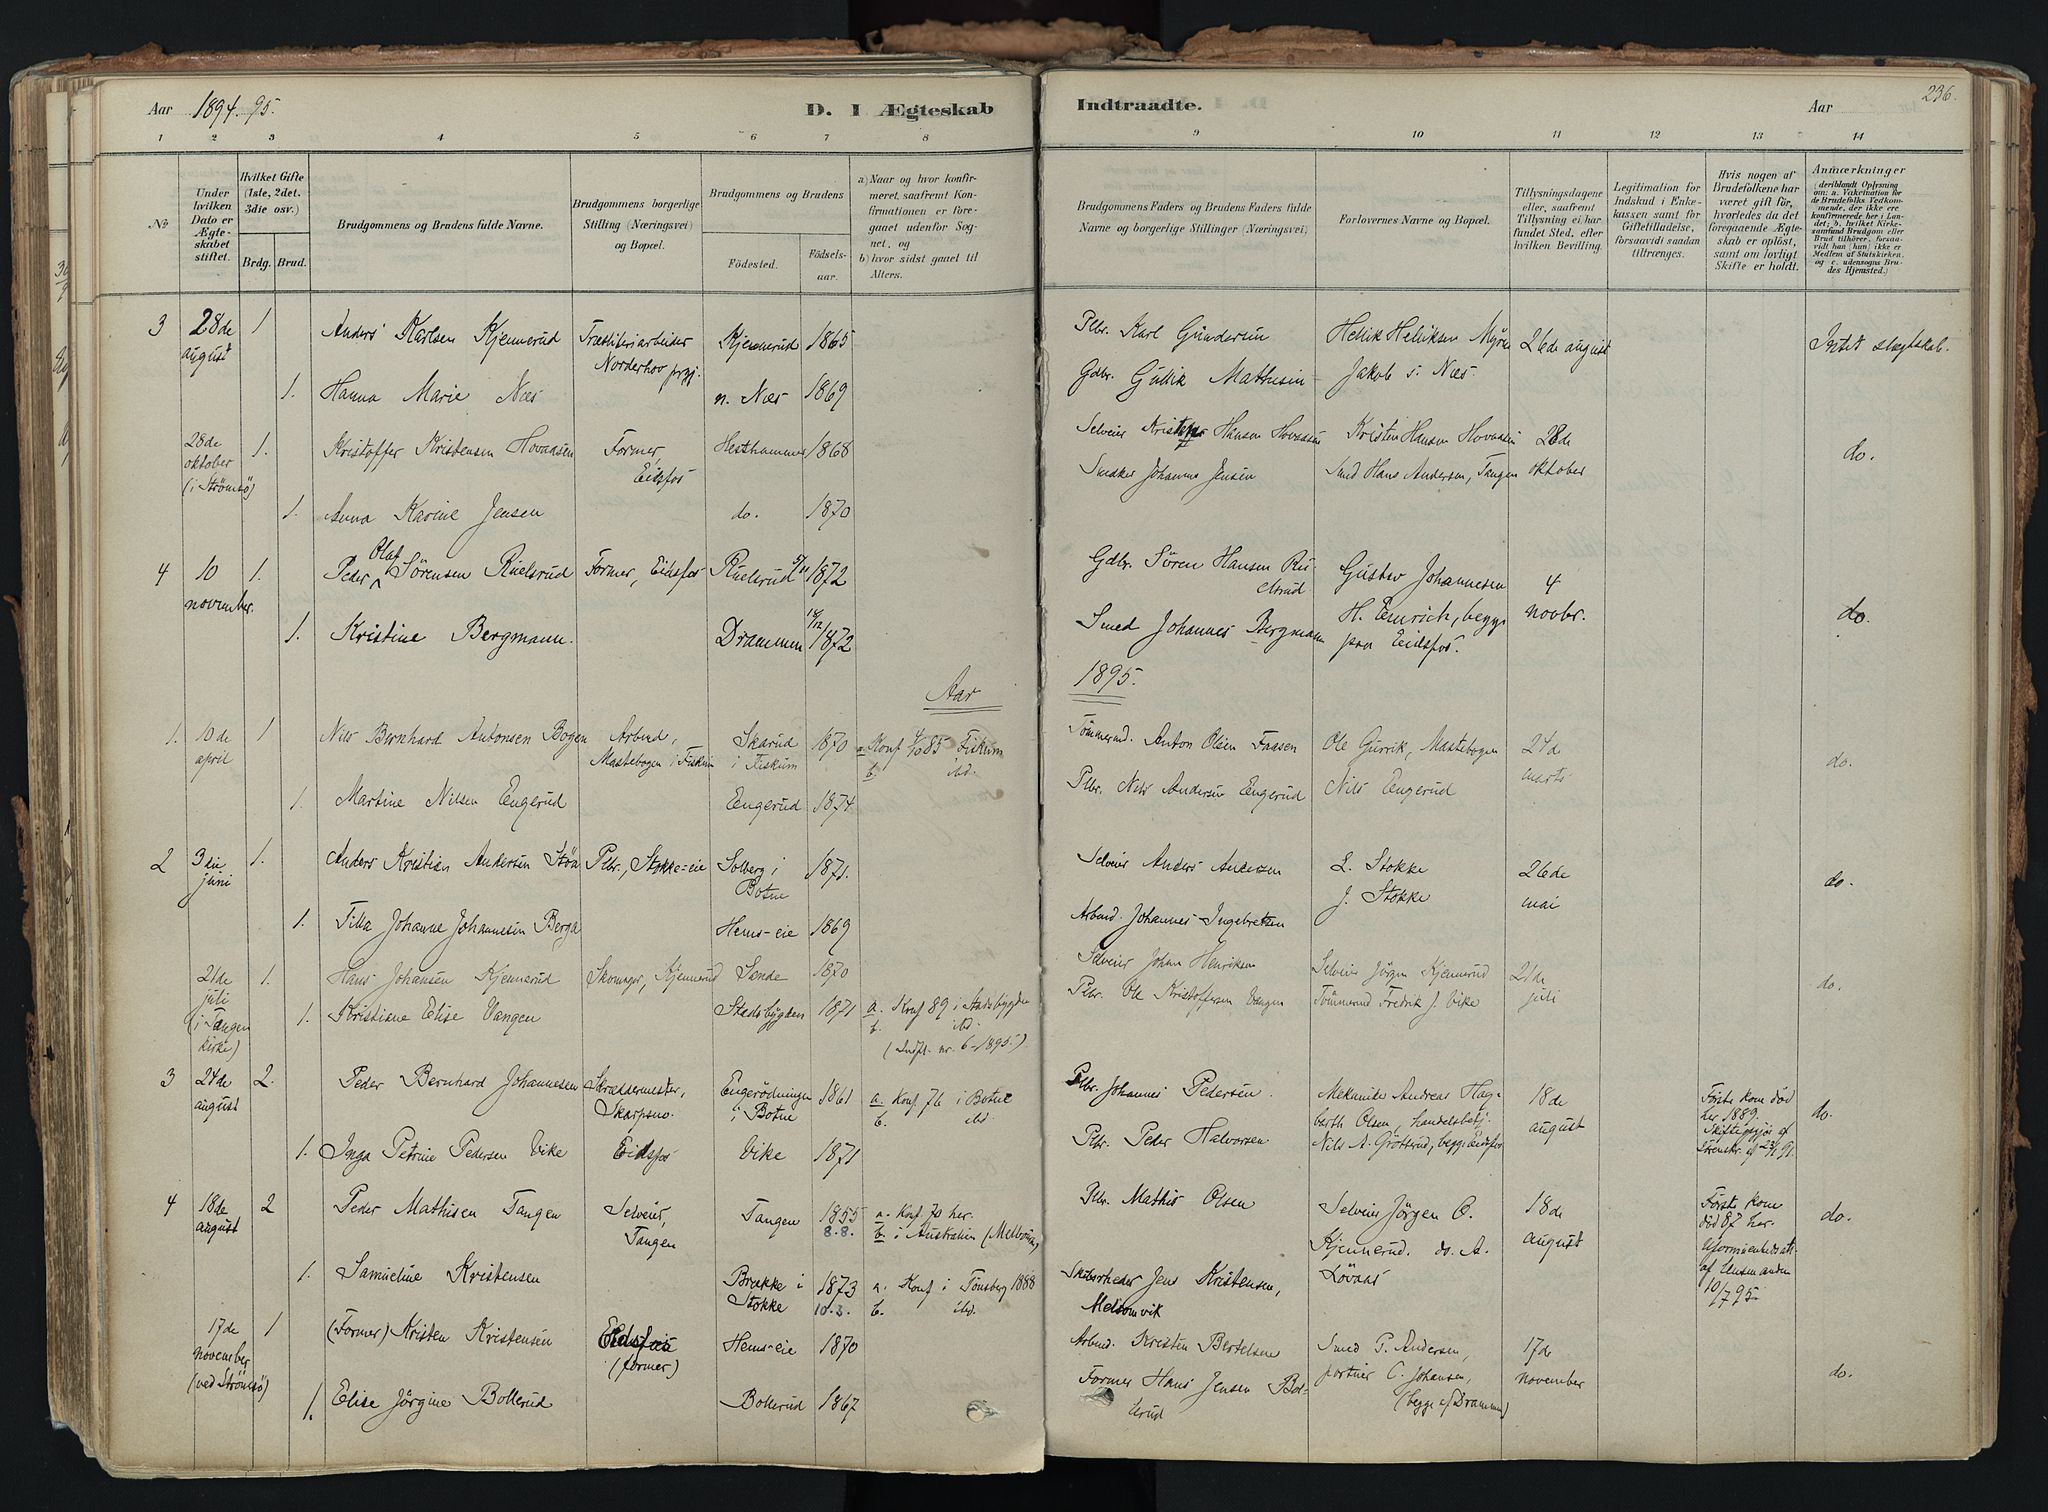 Aar 1894. 95.
D. I Ægteskab
Indtraadte.
Aar
236.
1 2 3 4 5 6 7 8 9 10 11 12 13 14
No
Under hvilken Dato er Ægteskabet stiftet.
Hvilket Gifte (1ste, 2det. 3die osv.)
Brdg. Brud.
Brudgommens og Brudens fulde Navne.
Brudgommens borgerlige Stilling (Næringsvei) og Bopæl.
Brudgommens og Brudens
Fødested.
Fødselsaar.
a) Naar og hvor konfirmeret, saafremt Konfirmationen er foregaaet udenfor Sognet, og
b) hvor sidst gaaet til Alters.
Brudgommens Faders og Brudens Faders fulde Navne og borgerlige Stillinger (Næringsvei)
Forlovernes Navne og Bopæl.
Tillysningsdagene eller, saafremt Tillysning ei har fundet Sted, efter hvilken Bevilling.
Legitimation for Indskud i Enkekassen samt for Giftetilladelse, forsaavidt saadan tiltrænges.
Hvis nogen af Brudefolkene har været gift før, hvorledes da det foregaaende Ægteskab er opløst, samt om lovligt Skifte er holdt.
Anmærkninger
(deriblandt Oplysning om: a. Vakcination for de Brudefolks Vedkommende, der ikke ere konfirmerede her i Landet; b. hvilket Kirkesamfund Brudgom eller Brud tilhører, forsaavidt han (hun) ikke er Medlem af Statskirken, og c. udensogns Brudes Hjemsted.)
3 28de august 1 Anders Karlsen Kjennerud Træsliberiarbeider Norderhov prgj. Kjennerud 1865 Plbr. Karl Gundersen Helik Heliksen Myra 26de august Intet slægtskab.
1. Hanna Marie Næs n. Næs 1869 Gdbr. Gullik Mathisen Jakob s. Næs
28de oktober (i Strömsö) 1. Kristoffer Kristensen Hovaasen Former, Eidsfos Hesthammer 1868 Selveier Kristen Hansen Hovaasen Kristen Hansen Hovaasen 28de oktober do.
1. Anna Karine Jensen do. 1870 Snedker Johannes Jensen Smed Hans Andersen, Tangen
4 10 november. 1. Peder Olaf Sörensen Ruelsrud Former, Eidsfos Ruelsrud 1872 Gdbr. Sören Hansen Ruelsrud Gustav Johannesen 4 novbr. do.
1. Kristine Bergmann. Drammen 1872 Smed Johannes Bergmann H. Emrich, begge paa Eidsfos.
Aar 1895.
1. 10de april 1 Nils Bernhard Antonsen Bogen Arbmd, Mastebogen i Fiskum Skarud i Fiskum 1870 a. Konf 4/10 85 Fiskum b. ibd. Tömmermd. Anton Olsen Faasen Ole Gurrik, Mastebogen 24de marts do.
1. Martine Nilsen Engerud Engerud 1874. Plbr. Nils Andersen Engerud Nils Engerud
2 3die juni 1. Anders Kristian Andersen Stöa Plbr., Stokke-eie Solberg i Botne 1871. Selveier Anders Andersen L. Stokke 26de mai do.
1. Tilla Johanne Johannesen Berga Hems-eie 1869 Arbmd. Johannes Ingebretsen J. Stokke
21de juli (i Tangen kirke) 1. Hans Johansen Kjennerud Skomager, Kjennerud Sande 1870 Selveier Johan Henriksen Selveier Jörgen Kjennerud 21de juli do.
1. Kristiane Elise Vangen Stadsbygden 1871 a. Konf 89 i Stadsbygden b. ibd. (Indfl. nr. 6-1895.) Plbr. Ole Kristoffersen Vangen Tömmermd Fredrik J. Vike
3 24de august 2. Peder Bernhard Johannesen Skræddermester, Skarpsno. Engerödningen i Botne 1861 a. Konf 76 i Botne b. ibd. Plbr. Johannes Pedersen. Mekaniker Andreas Hagberth Olsen, handelsbetj. 18de august Förste kone död her 1889. Skiftegjör af 23/1 91. do.
1. Inga Petrine Pedersen Vike Eidsfos Vike 1871 Plbr. Peder Halvorsen Nils A. Grötterud, begge Eidsfos
4 18de august 2 Peder Mathisen Tangen Selveier, Tangen Tangen 1855 8.8. a. Konf. 70 her. b. i Australien (Melbourne) Plbr. Mathis Olsen Selveier Jörgen C. Kjennerud. do. A. Lövaas 18de august Förste kone död 87 her. Uformuenhedsatt. af Lensmanden 10/7 95. do.
1. Samueline Kristensen Brække i Stokke 1873 10.3. a. Konf i Tönsberg 1888 b. ibd. Skibsreder Jens Kristensen, Melsomvik
17de november (ved Strömsö) 1 (Former) Kristen Kristensen Eidsfos (former) Hems-eie 1870 Arbmd. Kristen Bertelsen Smed P. Andersen, 17de november do.
1. Elise Jörgine Bollerud Bollerud 1867 Former Hans Jensen Bollerud portner C. Johansen, (begge af Drammen)